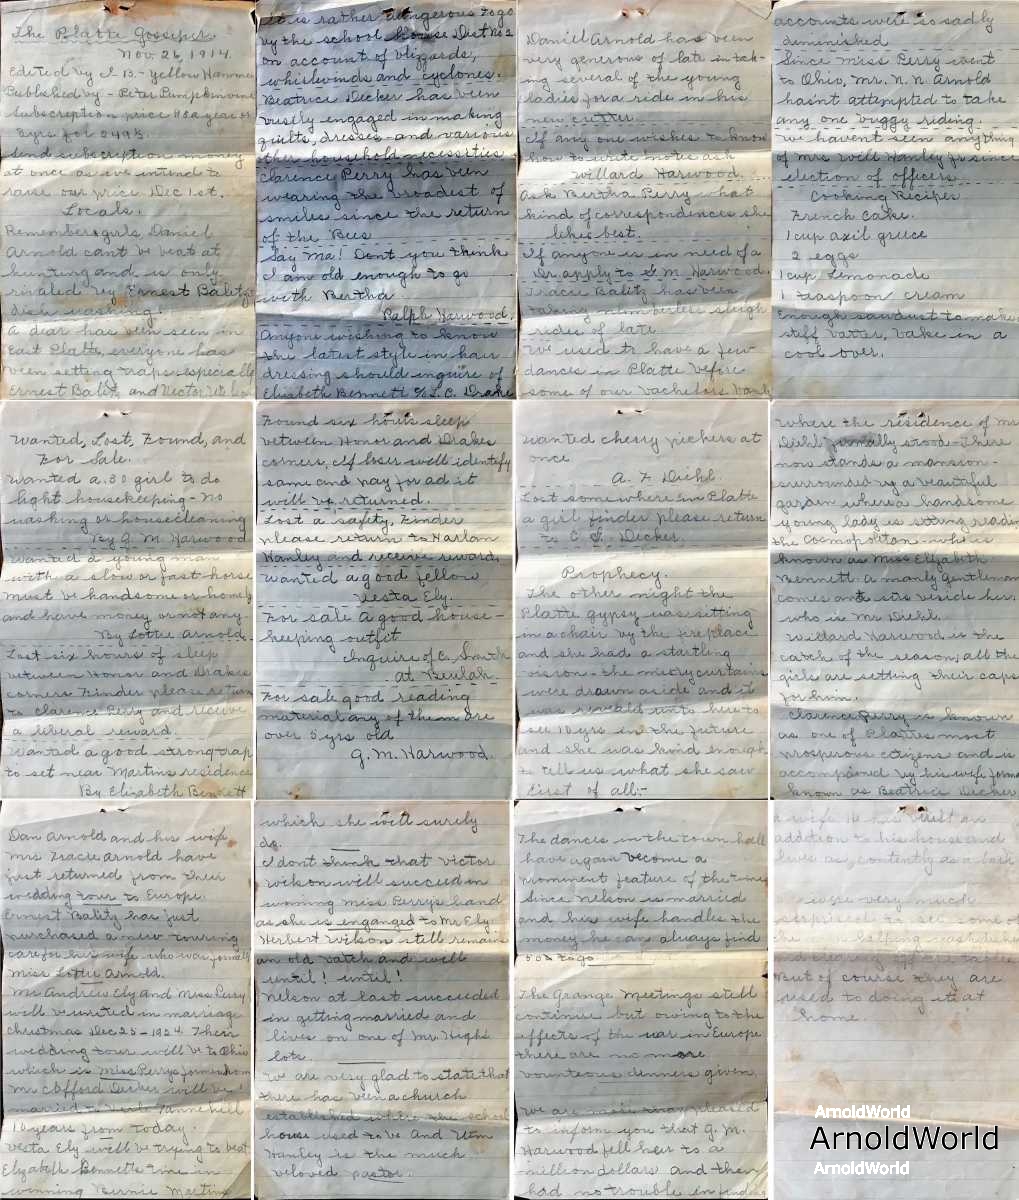 The Platte Gossiper.
Nov. 26, 1914.
Edited by I. B. - Yellow Hammer
Published by - Peter Pumpkinvine
Subscription price
Send subscription money
at once as we intend to
raise our price Dec 1st.
Locals.
Remember girls Daniel
Arnold cant be beat at
hunting and is only
rivaled by Ernest Balitz
dish washing.
A dear has been seen in
East Platte, everyone has
been setting traps especially
Ernest Balitz and Victor
It is rather dangerous to go
by the school house Dist No 2
on account of blizzards,
whirlwinds and cyclones.
Beatrice Decker has been
busily engaged in making
quilts, dresses and various
other household necessities
Clarence Perry has been
wearing the broadest of
smiles since the return
of the Bees
Say Ma! Dont you think
I am old enough to go
with Bertha
Ralph Harwood.
Anyone wishing to know
the latest style in hair
dressing should inquire of
Elizabeth Bennett % L. C. Drake
Daniel Arnold has been
very generous of late in tak-
ing several of the young
ladies for a ride in his
new cutter.
If any one wishes to know
how to write notes ask
Willard Harwood.
Ask Bertha Perry what
kind of correspondences she
likes best.
If anyone is in need of a
Dr. apply to G. M. Harwood.
Tracie Balitz has been
taking numberless sleigh
rides of late
We used to have a few
dances in Platte before
some of our bachelors bank
accounts were so sadly
diminished
Since Miss Perry went
to Ohio, Mr. N. N. Arnold
hasn't attempted to take
any one buggy riding.
We havent seen anything
of Mrs Will Hanley Jr since
election of officers
Cooking Recipes
French Cake.
1 cup axil greece
2 eggs
1 cup Lemonade
1 teaspoon cream
Enough sawdust to make
stiff batter, bake in a
cool oven.
Wanted, Lost, Found, and
For Sale.
Wanted a girl to do
light housekeeping - no
washing or housecleaning
By G. M. Harwood
Wanted a young man
with a slow or fast horse
must be handsome or homely
and have money or not any
By Lottie Arnold.
Lost six hours of sleep
between Honor and Drakes
corners. Finder please return
to Clarence Perry and receive
a liberal reward.
Wanted a good strong trap
to set near Martins residence
By Elizabeth Bennett
Found six hours sleep
between Honor and Drakes
corners, If loser will identify
same and pay for ad it
will be returned.
Lost a safety, Finder
please return to Harlan
Hanley and receive reward.
Wanted a good fellow
Vesta Ely.
For sale a good house-
keeping outfit
Inquire of C. Smith
at Beulah.
For sale good reading
material any of them are
over 5 yrs old
G. M. Harwood.
Wanted cherry pickers at
once
A. F. Diehl.
Lost some where in Platte
a girl finder please return
to C. S. Decker.
Prophecy.
The other night the
Platte gypsy was sitting
in a chair by the fireplace
and she had a startling
vision - the misty curtains
were drawn aside and it
was revealed unto her to
see 10 yrs in the future
and she was kind enough
to tell us what she saw
First of all:-
where the residence of Mr
Diehl formally stood - There
now stands a mansion -
surrounded by a beautiful
garden where a handsome
young lady is sitting reading
the Cosmopolitan - who is
known as Miss Elizabeth
Bennett a manly gentleman
comes and sits beside her.
who is Mr Diehl.
Willard Harwood is the
catch of the season, all the
girls are setting their caps
for him.
Clarence Perry is known
as one of Plattes most
prosperous citizens and is
accompanied by his wife formerly
known as Beatrice Decker
Dan Arnold and his wife,
Mrs Tracie Arnold have
just returned from their
wedding tour to Europe.
Ernest Balitz has just
purchased a new touring
car for his wife who was formally
Miss Lottie Arnold.
Mr Andrew Ely and Miss Perry
will be united in marriage
Christmas Dec 25 - 1924. Their
wedding tour will be to Ohio
which is Miss Perry's former home
Mr Clifford Decker will be
married to
10 years from today.
Vesta Ely will be trying to beat
Elizabeth Bennetts time in
winning Bernie Martins
which she will surely
do.
I dont think that Victor
Wilson will succeed in
winning Miss Perry's hand
as she is enganged to Mr Ely.
Herbert Wilson still remains
an old batch and will
until! until!
Nelson at last succeeded
in getting married and
lives on one of Mr. Highs
lots.
We are very glad to state that
there has been a church
established where the school
house used to be and
Hanley is the much
beloved pastor.
The dances in the town hall
have again become a
prominent feature of the times
Since Nelson is married
and his wife handles the
money he can always find
to go
The Grange Meetings still
continue but owing to the
affects of the war in Europe
there are no more
bounteous dinners given.
We are pleased
to inform you that G. M.
Harwood fell heir to a
million dollars and then
had no trouble in finding
a wife. He has built an
addition to his house and
lives as contently as a
very much
surprised to see some of
the helping wash dishes
and clearing off the tables
But of course they are
used to doing it at
home.
ArnoldWorld
ArnoldWorld
ArnoldWorld